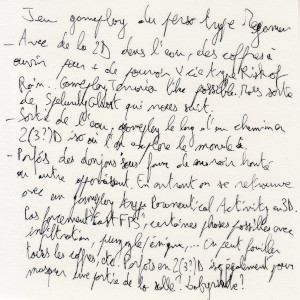 Jeu gameplay du perso type
- Avec de la 2D dans l'eau, des coffres à
ouvrir pour + de pouvoir type Risk of
Rain. Gameplay Terraria like possible. Mais sorte
de Spelunky Ghost qui nous suit.
- Sortie de l'eau, gameplay le long d'un chemin en
2(3?)D iso où l'on explore le monde à
- Parfois des donjons sous forme de manoir hanté
ou autre apparaissent. En entrant on se retrouve
avec un gameplay type Paranormal Activity en 3D.
Pas forcément "East FPS", certaines phases possibles avec
infiltration, puzzle/énigme,... On peut fouiller
tous les coffres, etc. Parfois en 2(3?)D iso également pour
masquer une partie de la salle? Labyrinthe?